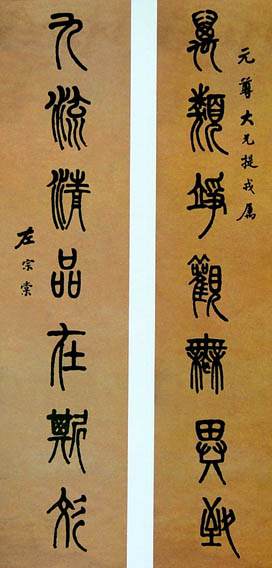 元尊大兄提戎屬
萬類竫觀無異致
九流清品在斯彣
左宗棠